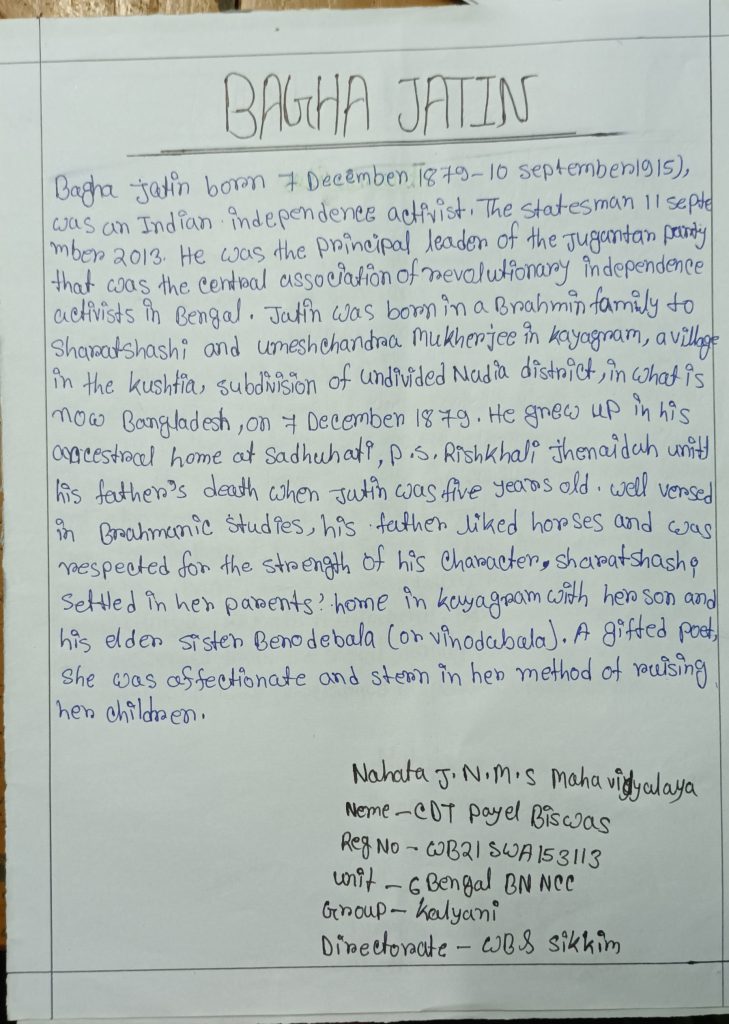 BAGHA JATIN
Bagha jatin born 7 December 1879-10 september1915),
was an Indian independence activist. The statesman 11 septe
mber 2013. He was the principal leader of the Jugantar party
that was the central association of revolutionary independence
activists in Bengal. Jatin was born in a Brahmin family to
Sharatshashi and umeshchandra Mukherjee in kayagram, a village
in the kushtia, subdivision of undivided Nadia district, in what is
now Bangladesh, on 7 December 1879. He grew up in his
ancestral home at Sadhuhati, P.S. Rishkhali Jhenaidah until
his father's death when Jatin was five years old. well versed
in Brahmanic Studies, his father liked horses and was
respected for the strength of his character, sharatshashi
Settled in her parents' home in kayagram with her son and
his elder sister Benodebala (or vinodabala). A gifted poet,
she was affectionate and stern in her method of raising
her children.
Nahata J.N.M.S Mahavidyalaya
Neme - CDT Payel Biswas
Reg No - WB21SWA153113
unit - 6 Bengal BN NCC
Group - Kalyani
Directorate - WB & Sikkim